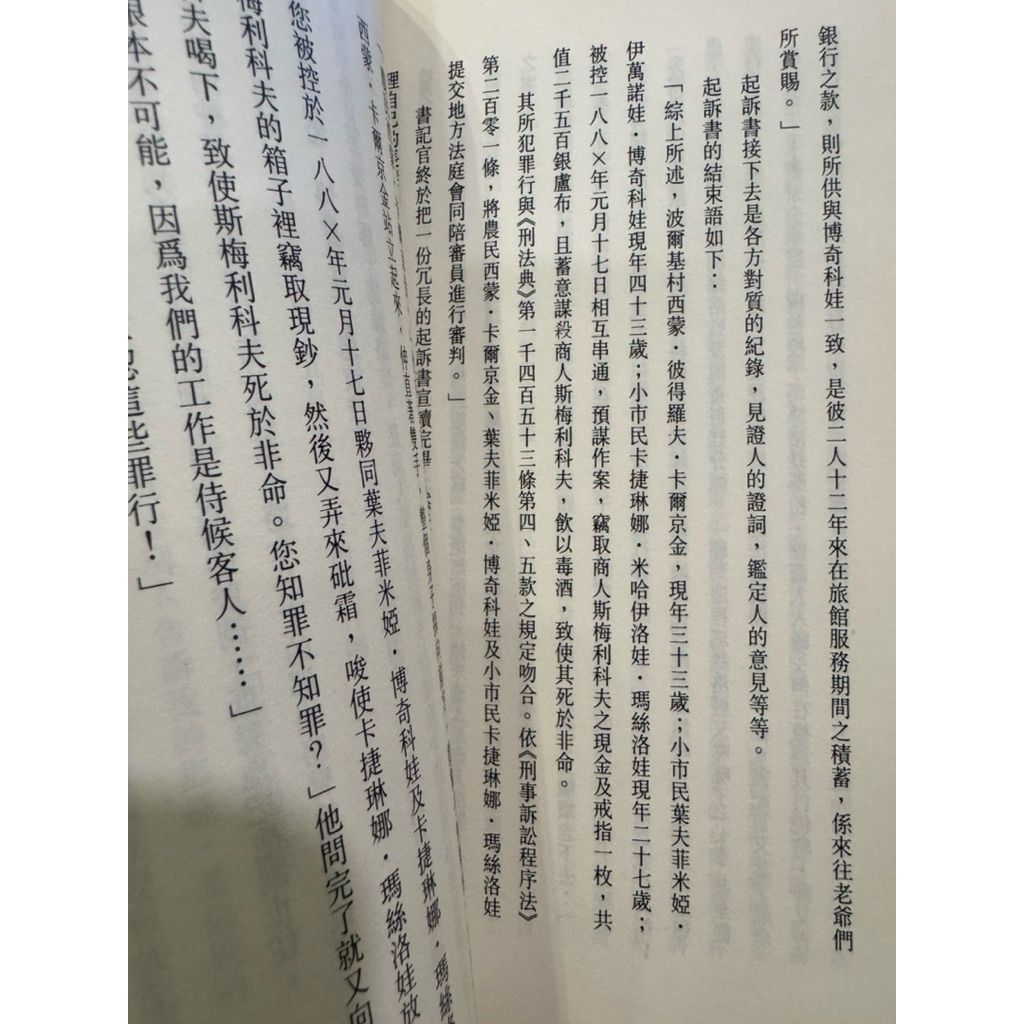 銀行之款，則所供與博奇科娃一致，是彼二人十二年來在旅館服務期間之積蓄，係來往老爺們
所賞賜。」
起訴書接下去是各方對質的紀錄，見證人的證詞，鑑定人的意見等等。
起訴書的結束語如下：
「綜上所述，波爾基村西蒙·彼得羅夫·卡爾京金，現年三十三歲；小市民葉夫菲米婭·
伊萬諾娃·博奇科娃現年四十三歲；小市民卡捷琳娜·米哈伊洛娃·瑪絲洛娃現年二十七歲；
被控一八八×年元月十七日相互串通，預謀作案，竊取商人斯梅利科夫之現金及戒指一枚，共
值二千五百銀盧布，且蓄意謀殺商人斯梅利科夫，飲以毒酒，致使其死於非命。
其所犯罪行與《刑法典》第一千四百五十三條第四、五款之規定吻合。依《刑事訴訟程序法》
第二百零一條，將農民西蒙·卡爾京金、葉夫菲米婭·博奇科娃及小市民卡捷琳娜·瑪絲洛娃
提交地方法庭會同陪審員進行審判。」
書記官終於把一份冗長的起訴書宣讀完畢
西蒙·卡爾京金站立起來，
您被控於一八八×年元月十七日夥同葉夫菲米婭·博奇科娃及卡捷琳娜·瑪絲
梅利科夫的箱子裡竊取現鈔，然後又弄來砒霜，唆使卡捷琳娜·瑪絲洛娃放
夫喝下，致使斯梅利科夫死於非命。您知罪不知罪？」他問完了就又向
根本不可能，因爲我們的工作是侍候客人……」
這些罪行！」